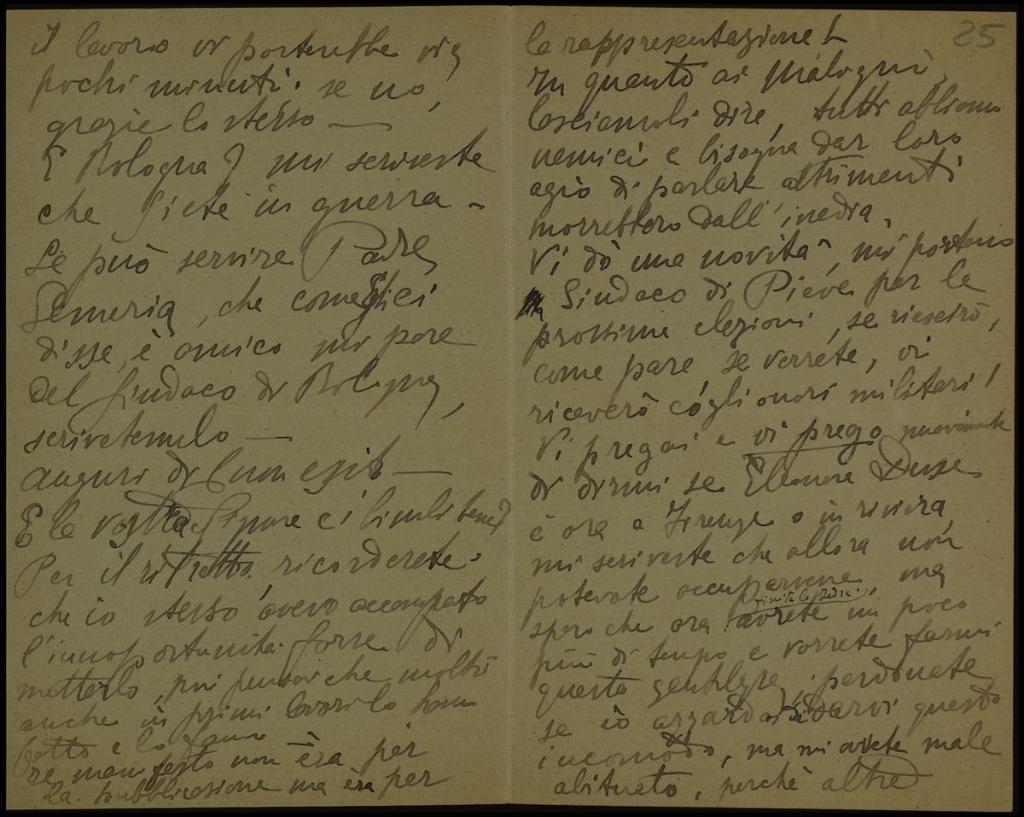 Il lavoro vi porterebbe via
pochi minuti. se no,
grazie lo stesso —
E Bologna? mi scriveste
che siete in guerra —
Se può servire Padre
Semeria, che come
disse, è amico mi pare
del Sindaco di Bologna,
scrivetemelo —
auguri di buon esito —
E la vostra Signora e i bimbi bene?
Per il ritratto ricorderete
che io stesso avevo accennato
l'inopportunità forse di
metterlo, poi pensai che molti
anche in primi lavori lo hanno
fatto e lo fanno
manifesto non era per
la pubblicazione ma era per
25
la rappresentazione!
In quanto ai maligni,
lasciamoli dire, tutti abbiamo
nemici e bisogna dar loro
agio di parlare altrimenti
morrebbero dall'inedia.
Vi dò una novità, mi portano
Sindaco di Pieve per le
prossime elezioni, se riescirò,
come pare se verrete, vi
riceverò cogli onori militari!
Vi pregai e vi prego nuovamente
di dirmi se Eleonora Duse
è ora a Firenze o in riviera,
mi scriveste che allora non
potevate occuparvene, ma
spero che ora avrete un poco
più di tempo e vorrete farmi
questa gentilezza. perdonate
se io azzardo darvi questo
incomodo, ma mi avete male
abituato, perchè altre